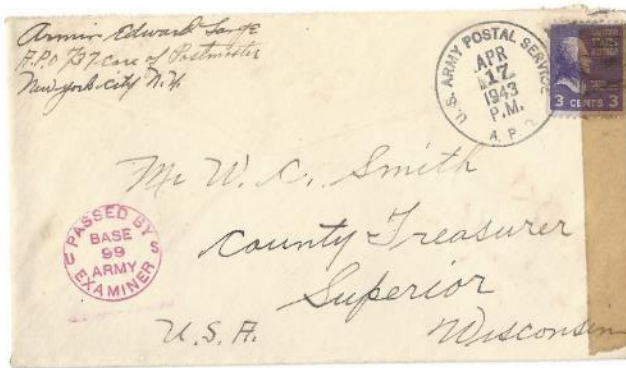 Armin Edward
A.P.O 737 care of Postmaster
New York City N.Y.
U.S. ARMY POSTAL SERVICE
APR
17
1943
P.M.
A.P.O.
3 CENTS 3
Mr W. C. Smith
County Treasurer
Superior
Wisconsin
U.S.A.
PASSED BY
BASE
99
ARMY
EXAMINER
U S